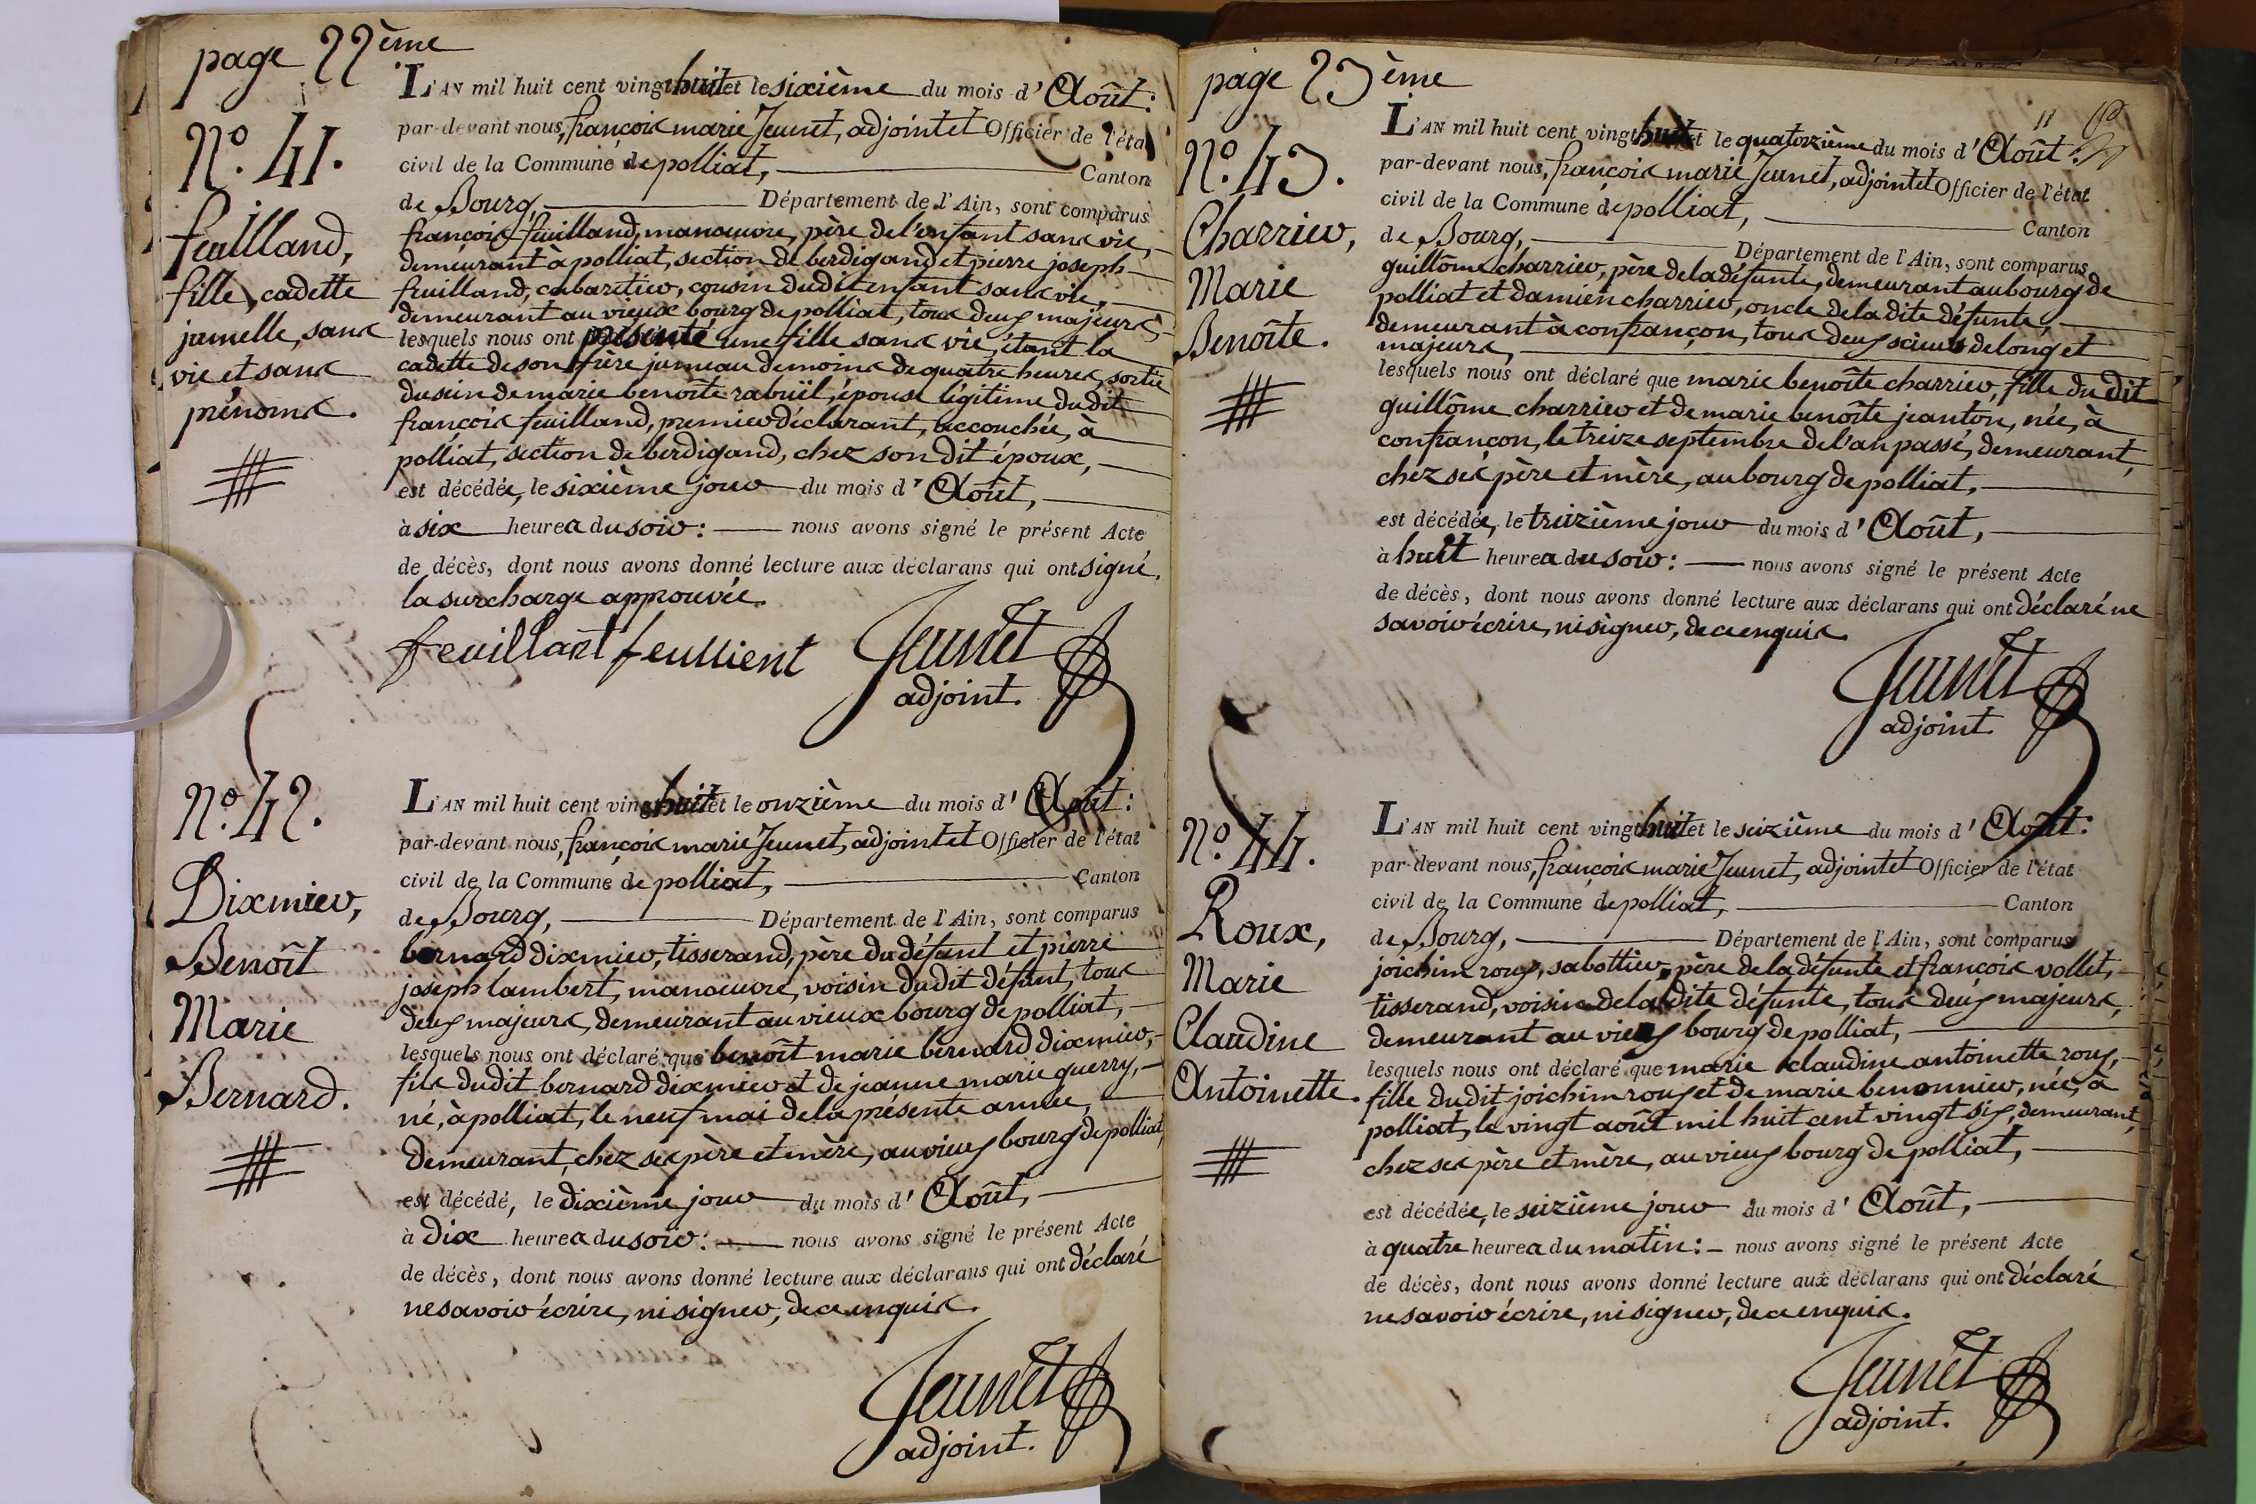 page 22ème
N.° 41.
feuilland,
fille, cadette
jumelle, sans
vie et sans
prénoms.
L'AN mil huit cent vingt huit et le sixième du mois d'Août:
par-devant nous, françois marie Jeunet, adjoint et Officier de l'état
civil de la Commune de polliat, Canton
de Bourg Département de l'Ain, sont comparus
françois feuilland, manoeuvre, père de l'enfant sans vie,
demeurant à polliat, section de berdigand et pierre joseph
feuilland, cabaretier, cousin dudit enfant sans vie,
demeurant au vieux bourg de polliat, tous deux majeurs,
lesquels nous ont présenté une fille sans vie, étant la
cadette de son frère jumeau de moins de quatre heures, sortie
du sein de marie benoîte rabuël, épouse légitime du dit
françois feuilland, premier déclarant, accouchée, à
polliat, section de berdigand, chez son dit époux,
est décédée, le sixième jour du mois d'Août,
à six heures du soir: nous avons signé le présent Acte
de décès, dont nous avons donné lecture aux déclarans qui ont signé.
la surcharge approuvée.
feuillant feullient Jeunet
adjoint.
N.° 42.
Dixmier,
Benoît
Marie
Bernard.
L'AN mil huit cent vingt huit et le onzième du mois d'Août:
par-devant nous, françois marie Jeunet, adjoint et Officier de l'état
civil de la Commune de polliat, Canton
de Bourg, Département de l'Ain, sont comparus
bernard dixmier, tisserand, père du défunt et pierre
joseph lambert, manoeuvre, voisin du dit défunt, tous
deux majeurs, demeurant au vieux bourg de polliat,
lesquels nous ont déclaré que benoît marie bernard dixmier,
fils du dit bernard dixmier et de jeanne marie guerry,
né, à polliat, le neuf mai de la présente année,
demeurant, chez ses père et mère, au vieux bourg de polliat,
est décédé, le dixième jour du mois d'Août,
à dix heures du soir: nous avons signé le présent Acte
de décès, dont nous avons donné lecture aux déclarans qui ont déclaré
ne savoir écrire, ni signer, de ce enquis.
Jeunet
adjoint.
page 23ème
N.° 43.
Charrier,
Marie
Benoîte.
L'AN mil huit cent vingt huit et le quatorzième du mois d'Août:
par-devant nous, françois marie Jeunet, adjoint et Officier de l'état
civil de la Commune de polliat, Canton
de Bourg, Département de l'Ain, sont comparus
guillôme charrier, père de la défunte, demeurant au bourg de
polliat et damien charrier, oncle de la dite défunte,
demeurant à confrançon, tous deux scieurs de long et
majeurs,
lesquels nous ont déclaré que marie benoîte charrier, fille du dit
guillôme charrier et de marie benoîte jeanton, née, à
confrançon, le treize septembre de l'an passé, demeurant,
chez ses père et mère, au bourg de polliat,
est décédée, le treizième jour du mois d'Août,
à huit heures du soir: nous avons signé le présent Acte
de décès, dont nous avons donné lecture aux déclarans qui ont déclaré ne
savoir écrire, ni signer, de ce enquis.
Jeunet
adjoint.
N.° 44.
Roux,
Marie
Claudine
Antoinette.
L'AN mil huit cent vingt huit et le seizième du mois d'Août:
par-devant nous, françois marie Jeunet, adjoint et Officier de l'état
civil de la Commune de polliat, Canton
de Bourg, Département de l'Ain, sont comparus
joichim roux, sabottier, père de la défunte et françois vollet,
tisserand, voisin de la dite défunte, tous deux majeurs,
demeurant au vieux bourg de polliat,
lesquels nous ont déclaré que marie claudine antoinette roux,
fille du dit joichim roux et de marie benonnier, née, à
polliat, le vingt août mil huit cent vingt six, demeurant,
chez ses père et mère, au vieux bourg de polliat,
est décédée, le seizième jour du mois d'Août,
à quatre heures du matin: nous avons signé le présent Acte
de décès, dont nous avons donné lecture aux déclarans qui ont déclaré
ne savoir écrire, ni signer, de ce enquis.
Jeunet
adjoint.